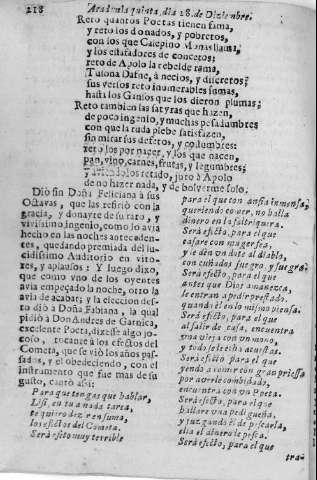 218 Academia quinta, dia 28. de Diziembre.
Reto quantos Poetas tienen fama,
y reto los donados, y pobretos,
con los que Calepino Manas llama,
y los estafadores de concetos;
reto de Apolo la rebelde rama,
Tusona Dafne, à necios, y discretos;
sus versos reto inumerables sumas,
hasta los Gansos que los dieron plumas;
Reto tambien las satyras que hazen,
de poco ingenio, y muchas pesadumbres
con que la ruda plebe satisfazen,
sin mirar sus defetos, y costumbres:
reto los por nacer, y los que nacen,
pan, vino, carnes, frutas, y legumbres;
y aviendolos retado, juro à Apolo
de no hazer nada, y de bolverme solo.
Diò fin Doña Feliciana à sus
Octavas, que las refiriò con la
gracia, y donayre de su raro, y
vivissimo ingenio, como lo avia
hecho en las noches anteceden-
tes, quedando premiada del lu-
cidissimo Auditorio en vito-
res, y aplausos: Y luego dixo,
que como vno de los oyentes
avia empeçado la noche, otro la
avia de acabar; y la eleccion des-
to diò à Doña Fabiana, la qual
pidiò à Don Andres de Garnica,
excelente Poeta, dixesse algo jo-
coso, tocante à los efectos del
Cometa, que se viò los años pas-
sados, y el obedeciendo, con el
instrumento que fue mas de su
gusto, cantò assi:
Para que tengas que hablar,
Lisi, en tu amada tarea,
te quiero dezir en suma,
los efectos del Cometa.
Serà esto muy terrible
para el que con ansia inmensa,
queriendo cover, no halla
dinero en la faltriquera.
Serà efecto, para el que
casare con muger fea,
y le dèn vn dote al diablo,
con cuñados suegro, y suegra.
Serà efecto, para el que
antes que Dios amanezca,
le entran à pedir prestado,
quando èl en lo mismo piensa.
Serà efecto, para el que
al salir de casa, encuentra
vna vieja con vn mono,
y todo se lo echa acuestas.
Serà efecto para el que
yendo à comer con gran priessa
por averle combidado,
encuentra con vn Poeta.
Serà efecto, para el que
hallare vna pedigueña,
y juzgando èl de pescarla,
ella el dinero le pesca.
Serà efecto, para el que
tra-